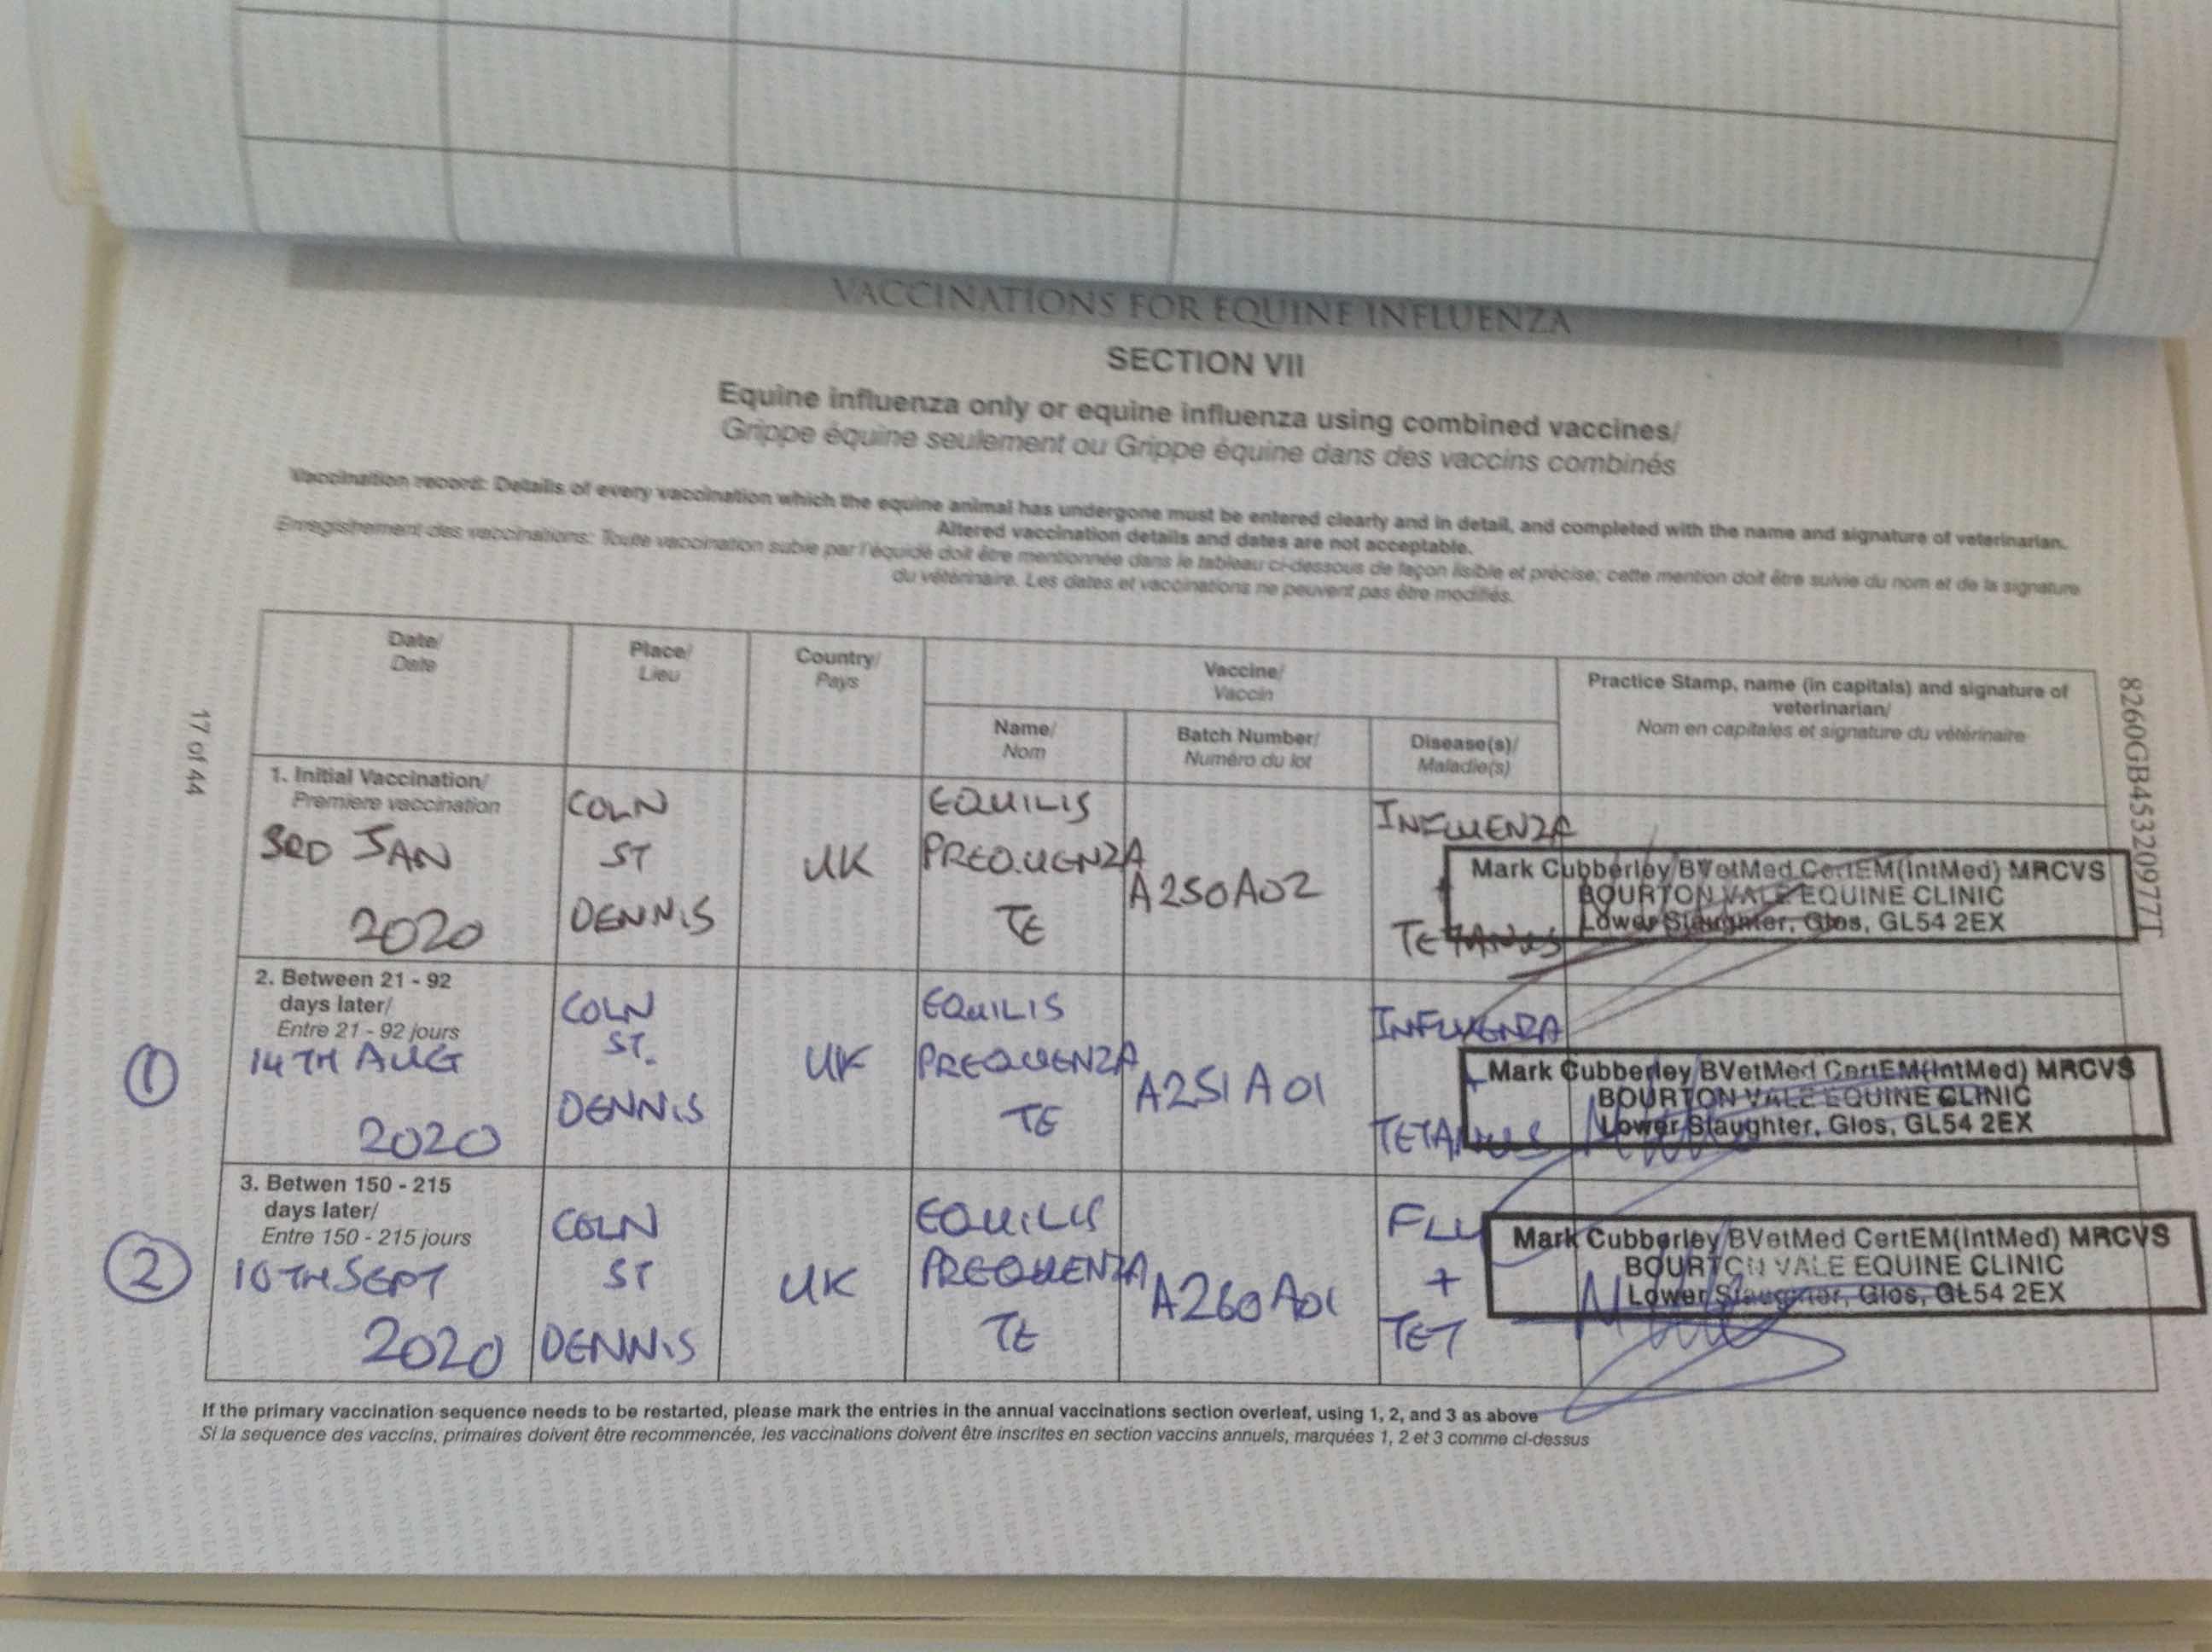 VACCINATIONS FOR EQUINE INFLUENZA
SECTION VII
Equine influenza only or equine influenza using combined vaccines/
Grippe équine seulement ou Grippe équine dans des vaccins combinés
Vaccination record: Details of every vaccination which the equine animal has undergone must be entered clearly and in detail, and completed with the name and signature of veterinarian.
Altered vaccination details and dates are not acceptable.
Enregistrement des vaccinations: Toute vaccination subie par l'équidé doit être mentionnée dans le tableau ci-dessous de façon lisible et précise; cette mention doit être suivie du nom et de la signature
du vétérinaire. Les dates et vaccinations ne peuvent pas être modifiés.
Date/
Date
Place/
Lieu
Country/
Pays
Vaccine/
Vaccin
Name/
Nom
Batch Number/
Numéro du lot
Disease(s)/
Maladie(s)
Practice Stamp, name (in capitals) and signature of
veterinarian/
Nom en capitales et signature du vétérinaire
1. Initial Vaccination/
Premiere vaccination
3RD JAN
2020
COLN
ST
DENNIS
UK
EQUILIS
PREQUENZA
TE
A250A02
INFLUENZA
+
TETANUS
Mark Cubberley BVetMed CertEM(IntMed) MRCVS
BOURTON VALE EQUINE CLINIC
Lower Slaughter, Glos, GL54 2EX
2. Between 21 - 92
days later/
Entre 21 - 92 jours
①
14TH AUG
2020
COLN
ST.
DENNIS
UK
EQUILIS
PREQUENZA
TE
A251A01
INFLUENZA
+
TETANUS
Mark Cubberley BVetMed CertEM(IntMed) MRCVS
BOURTON VALE EQUINE CLINIC
Lower Slaughter, Glos, GL54 2EX
3. Betwen 150 - 215
days later/
Entre 150 - 215 jours
②
10TH SEPT
2020
COLN
ST
DENNIS
UK
EQUILIS
PREQUENZA
TE
A260A01
FLU
+
TET
Mark Cubberley BVetMed CertEM(IntMed) MRCVS
BOURTON VALE EQUINE CLINIC
Lower Slaughter, Glos, GL54 2EX
If the primary vaccination sequence needs to be restarted, please mark the entries in the annual vaccinations section overleaf, using 1, 2, and 3 as above
Si la sequence des vaccins, primaires doivent être recommencée, les vaccinations doivent être inscrites en section vaccins annuels, marquées 1, 2 et 3 comme ci-dessus
17 of 44
8260GB45320977T